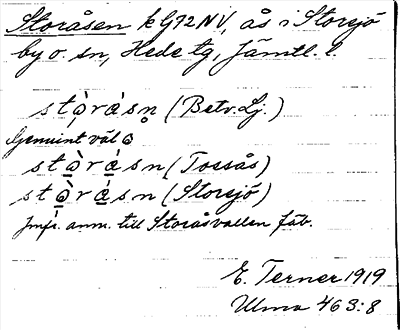 Storåsen k G72 NV, ås i Storsjö
by o. sn, Hede tg, Jämtl. l.
stɷ̀rásn̥ (Betv. Lj.)
Genuint väl ɷ
stɷ̀rásn (Tossås)
stɷ̀rásn (Storsjö)
Jmfr. anm. till Storåsvallen fäb.
E. Terner 1919
Ulma 463:8